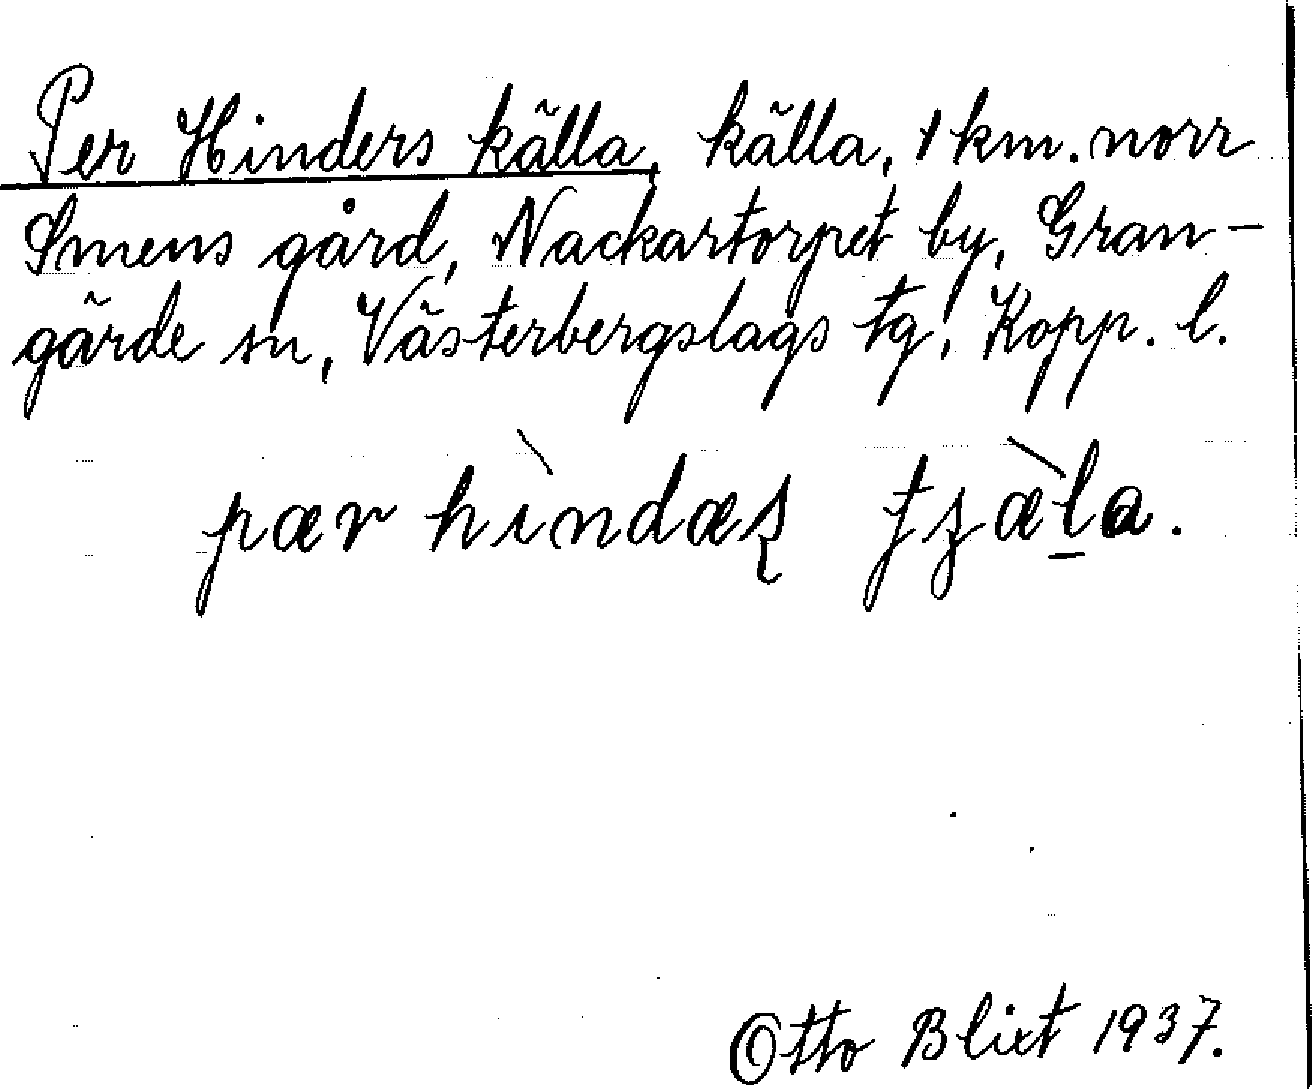 Per Hinders källa, källa, 1 km. norr
Smens gård, Nackartorpet by, Gran-
gärde sn, Västerbergslags tg, Kopp. l.
pær hìndæʂ tʒæ̀la.
Otto Blixt 1937.